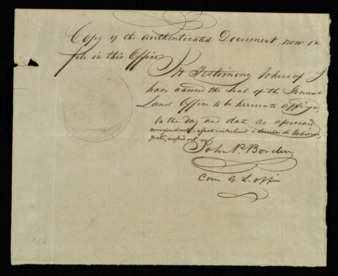 Copy of the authenticated Document now in
file in this Office
In Testimony Whereof I
have caused the Seal of the General
Land Office to be hereunto Affixed
to the day and date as aforesaid
John P. Borden
Com G L. office